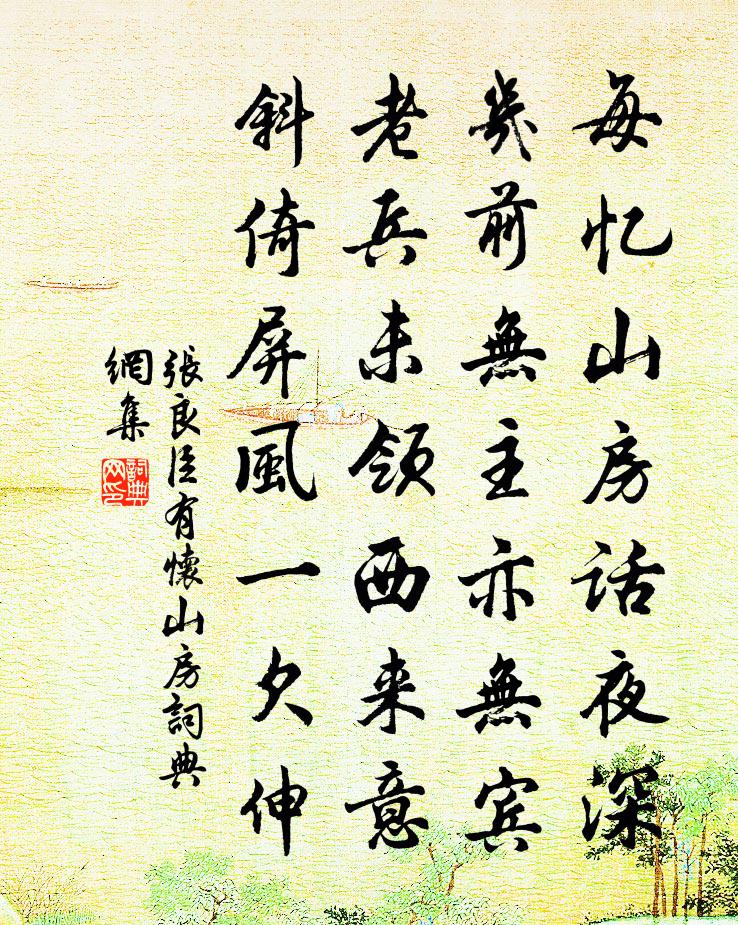 每忆山房话夜深
几前無主亦無宾
老兵未领西来意
斜倚屏風一欠伸
張良臣有懷山房詞典
網集
詞典
网印